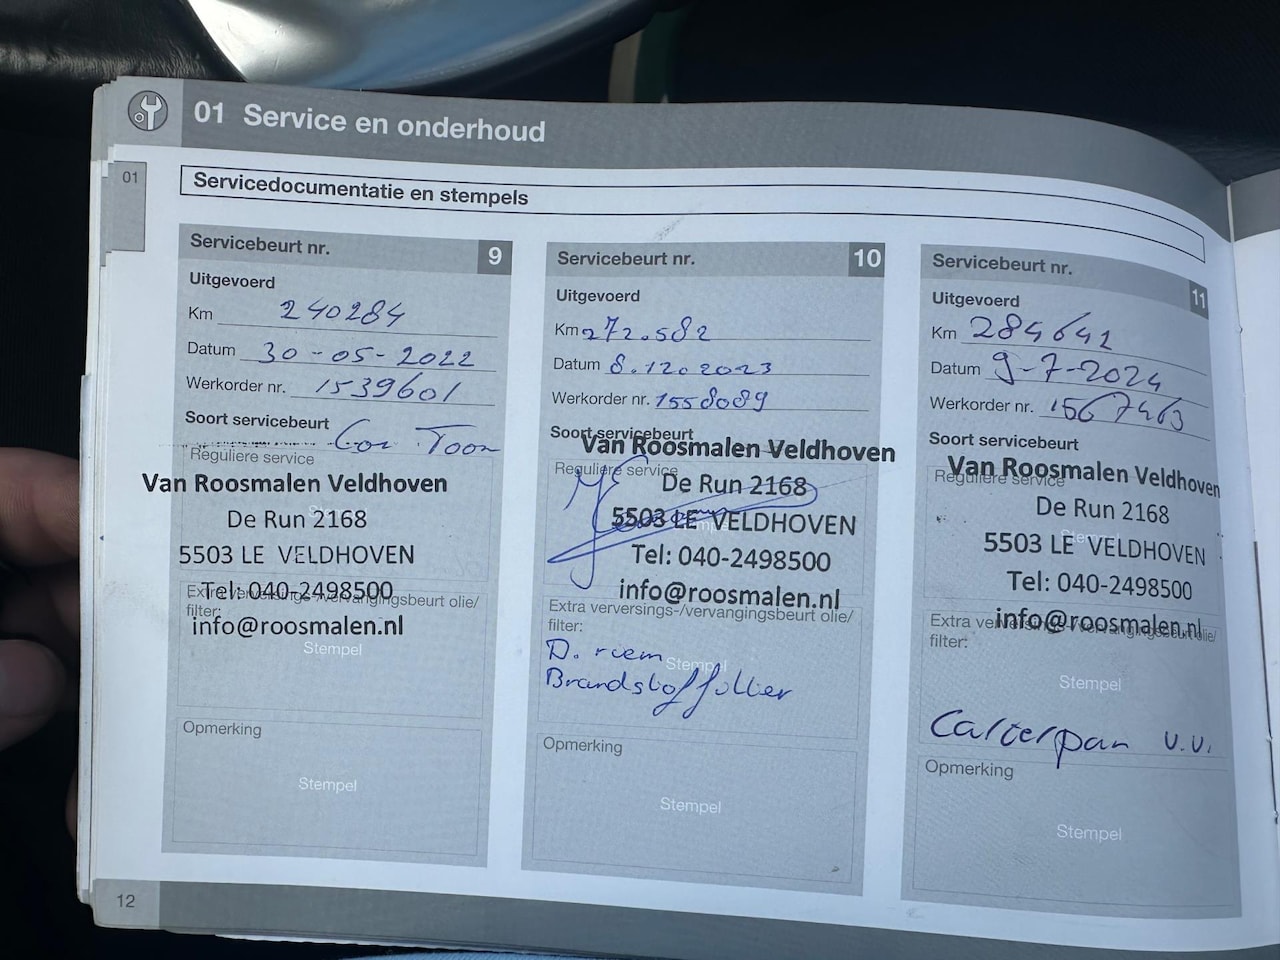 01 Service en onderhoud
01
Servicedocumentatie en stempels
Servicebeurt nr. 9
Uitgevoerd
Km 240284
Datum 30-05-2022
Werkorder nr. 1539601
Soort servicebeurt
Reguliere service
Van Roosmalen Veldhoven
De Run 2168
5503 LE VELDHOVEN
Tel: 040-2498500
info@roosmalen.nl
Extra verversings-/vervangingsbeurt olie/
filter:
Stempel
Opmerking
Stempel
Servicebeurt nr. 10
Uitgevoerd
Km 272.582
Datum 8.12.2023
Werkorder nr. 1558089
Soort servicebeurt
Van Roosmalen Veldhoven
Reguliere service
De Run 2168
5503 LE VELDHOVEN
Tel: 040-2498500
info@roosmalen.nl
Extra verversings-/vervangingsbeurt olie/
filter:
D. riem
Stempel
Brandstoffilter
Opmerking
Stempel
Servicebeurt nr. 11
Uitgevoerd
Km 284641
Datum 9-7-2024
Werkorder nr. 1567463
Soort servicebeurt
Van Roosmalen Veldhoven
Reguliere service
De Run 2168
Stempel
5503 LE VELDHOVEN
Tel: 040-2498500
info@roosmalen.nl
Extra verversings-/vervangingsbeurt olie/
filter:
Stempel
Carterpan v.v.
Opmerking
Stempel
12